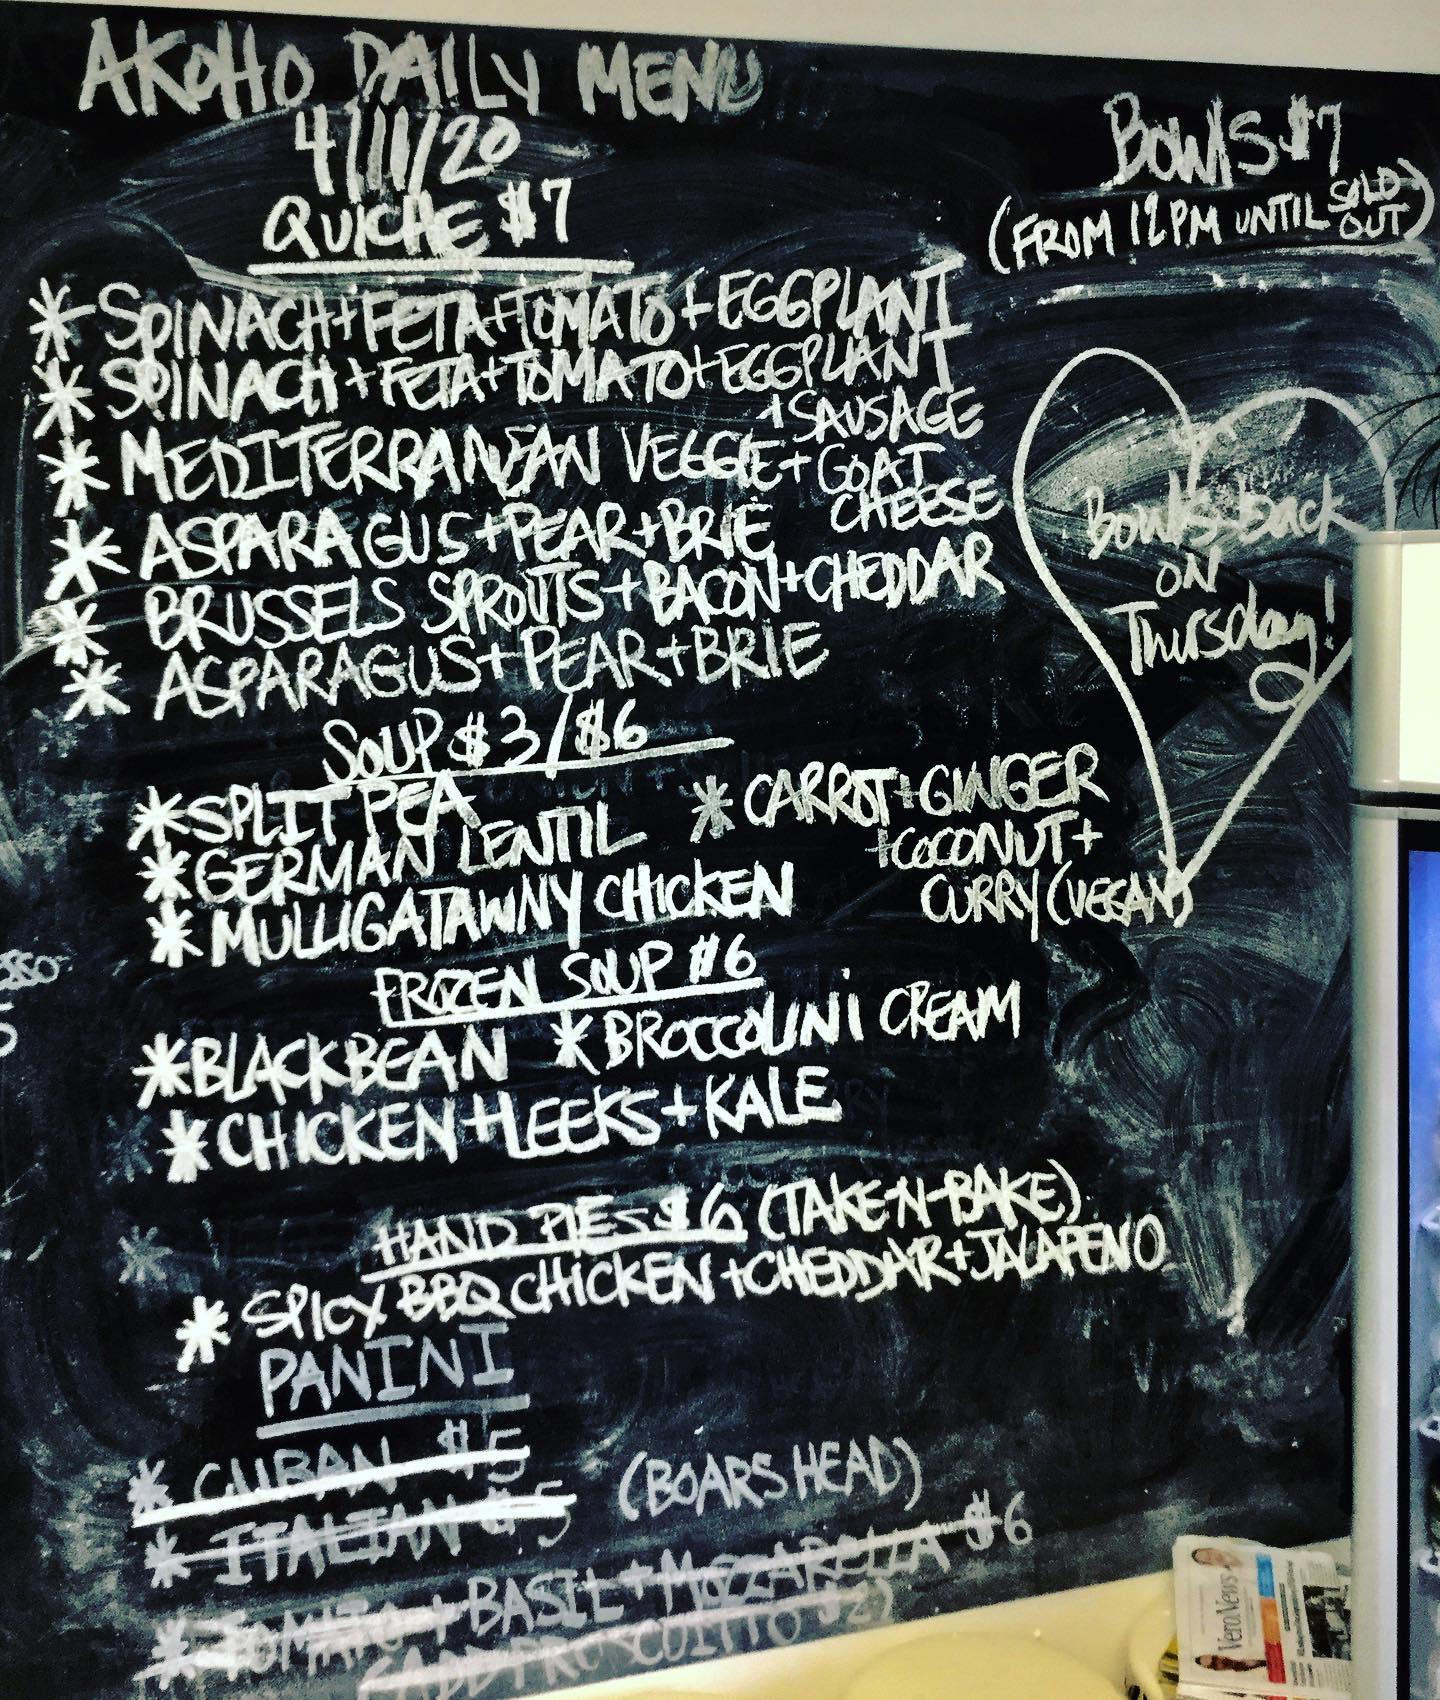 AKOHO DAILY MENU
4/11/20
QUICHE $7
* SPINACH+FETA+TOMATO+EGGPLANT
* SPINACH+FETA+TOMATO+EGGPLANT
+SAUSAGE
* MEDITERRANEAN VEGGIE+GOAT
CHEESE
* ASPARAGUS+PEAR+BRIE
* BRUSSELS SPROUTS+BACON+CHEDDAR
* ASPARAGUS+PEAR+BRIE
SOUP $3/$6
* SPLIT PEA
* GERMAN LENTIL
* MULLIGATAWNY CHICKEN
* CARROT+GINGER
+COCONUT+
CURRY (VEGAN)
FROZEN SOUP $6
* BLACKBEAN * BROCCOLINI CREAM
* CHICKEN+LEEKS+KALE
HAND PIES $6 (TAKE-N-BAKE)
* SPICY BBQ CHICKEN+CHEDDAR+JALAPENO
PANINI
* CUBAN $5
* ITALIAN $5 (BOARS HEAD)
* TOMATO+BASIL+MOZZARELLA $6
(ADD PROSCUITTO $2)
BOWLS $7
(FROM 12PM UNTIL SOLD
OUT)
Bowls back
ON
Thursday!
VeroNews